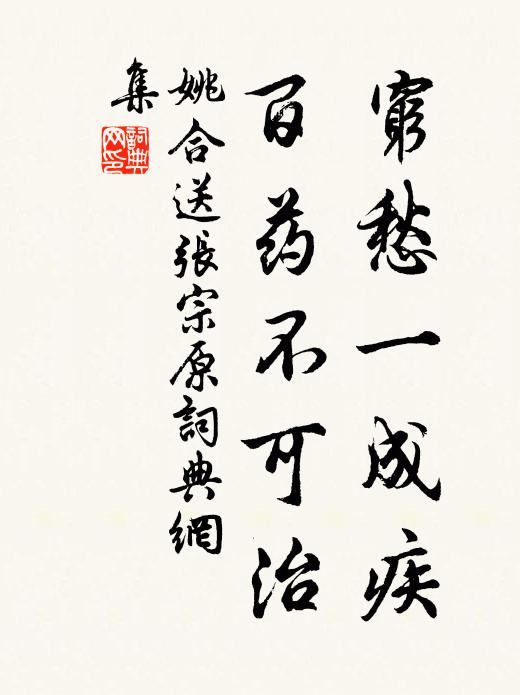 窮愁一成疾
百药不可治
姚合送張宗原詞典網
集
詞典
网印